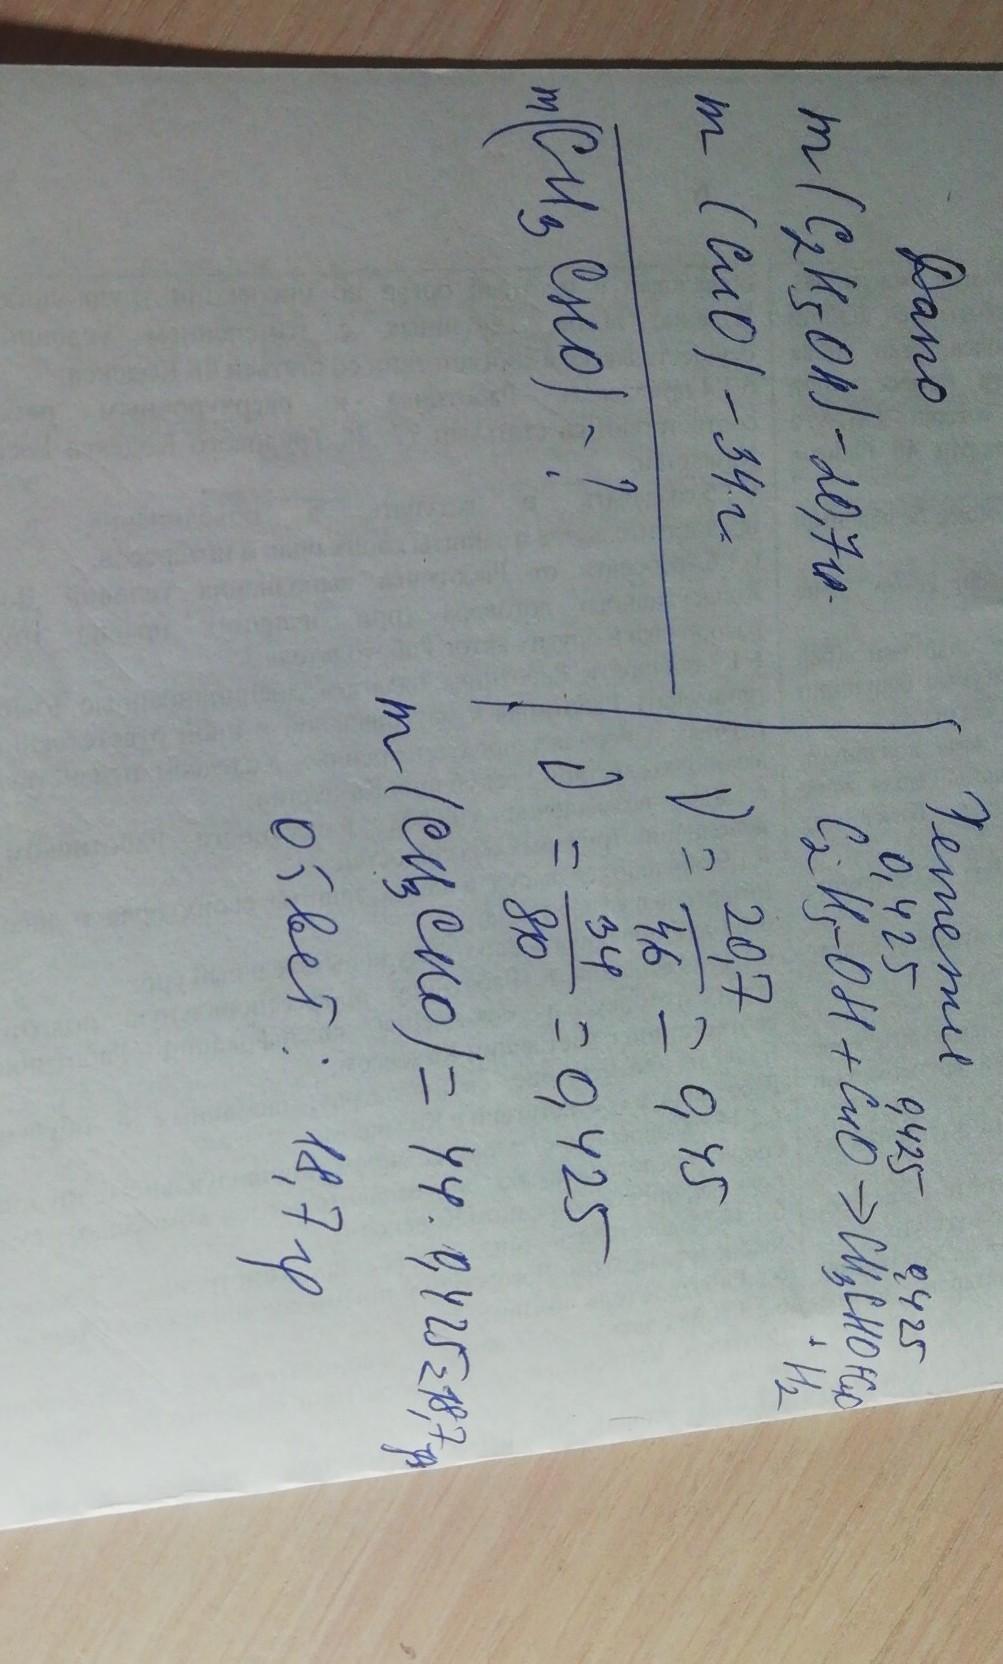 Дано
m(C₂H₅OH) - 20,7 гр.
m (CuO) - 34 г.
m(CH₃CHO) - ?
Решение
0,425 0,425 0,425
C₂H₅-OH + CuO → CH₃CHO + H₂O
ν = 20,7/46 = 0,45
ν = 34/80 = 0,425
m (CH₃CHO) = 44 · 0,425 = 18,7 гр
Ответ: 18,7 гр